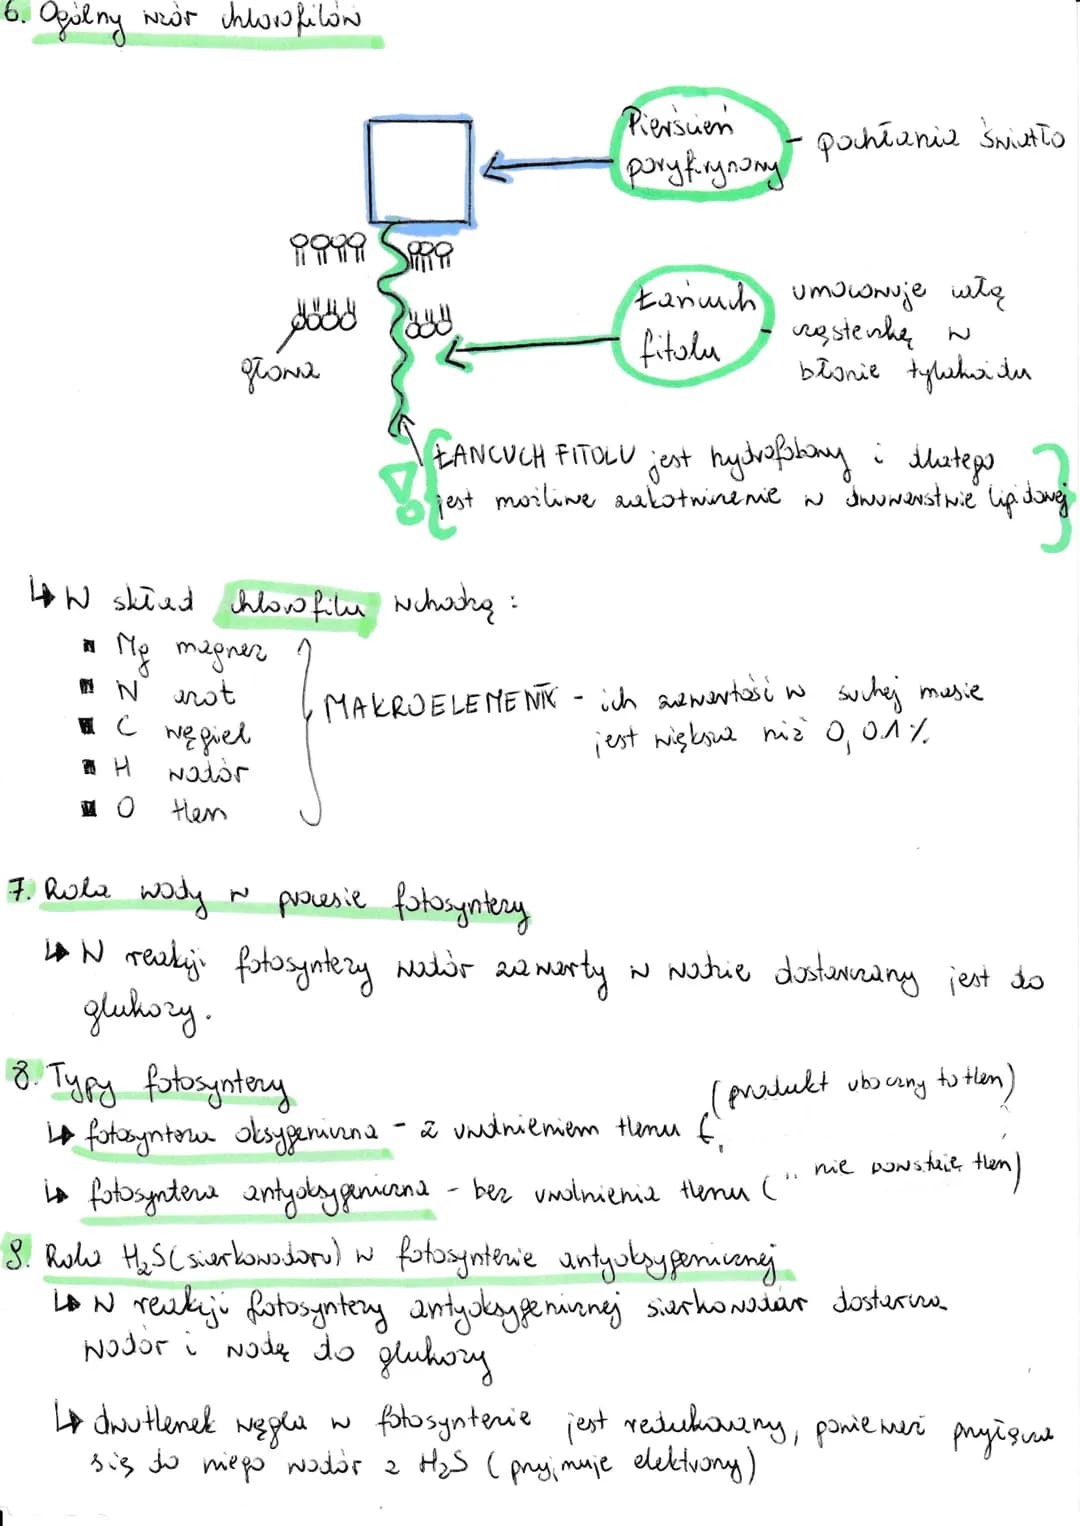 6. Ogólny wzór chlorofilów
Pierścień
poryfrynowy
- pochłania światło
Łańcuch
fitolu
- umocowuje całą
cząsteczkę w
błonie tylakoidu
głowa
ŁAŃCUCH FITOLU jest hydrofobowy i dlatego
jest możliwe zakotwiczenie w dwuwarstwie lipidowej
↳ W skład chlorofilu wchodzą :
▪ Mg magnez
▪ N azot
▪ C węgiel
▪ H wodór
▪ O tlen
MAKROELEMENTY - ich zawartość w suchej masie
jest większa niż 0,01%
7. Rola wody w procesie fotosyntezy
↳ W reakcji fotosyntezy wodór zawarty w wodzie dostarczany jest do
glukozy.
8. Typy fotosyntezy
↳ fotosynteza oksygeniczna - z uwolnieniem tlenu (produkt uboczny to tlen)
↳ fotosynteza antyoksygeniczna - bez uwolnienia tlenu ( " nie powstaje tlen)
9. Rola H₂S (siarkowodoru) w fotosyntezie antyoksygenicznej
↳ W reakcji fotosyntezy antyoksygenicznej siarkowodór dostarcza
wodór i wodę do glukozy
↳ dwutlenek węgla w fotosyntezie jest redukowany, ponieważ przyłącza
się do niego wodór z H₂S (przyjmuje elektrony)